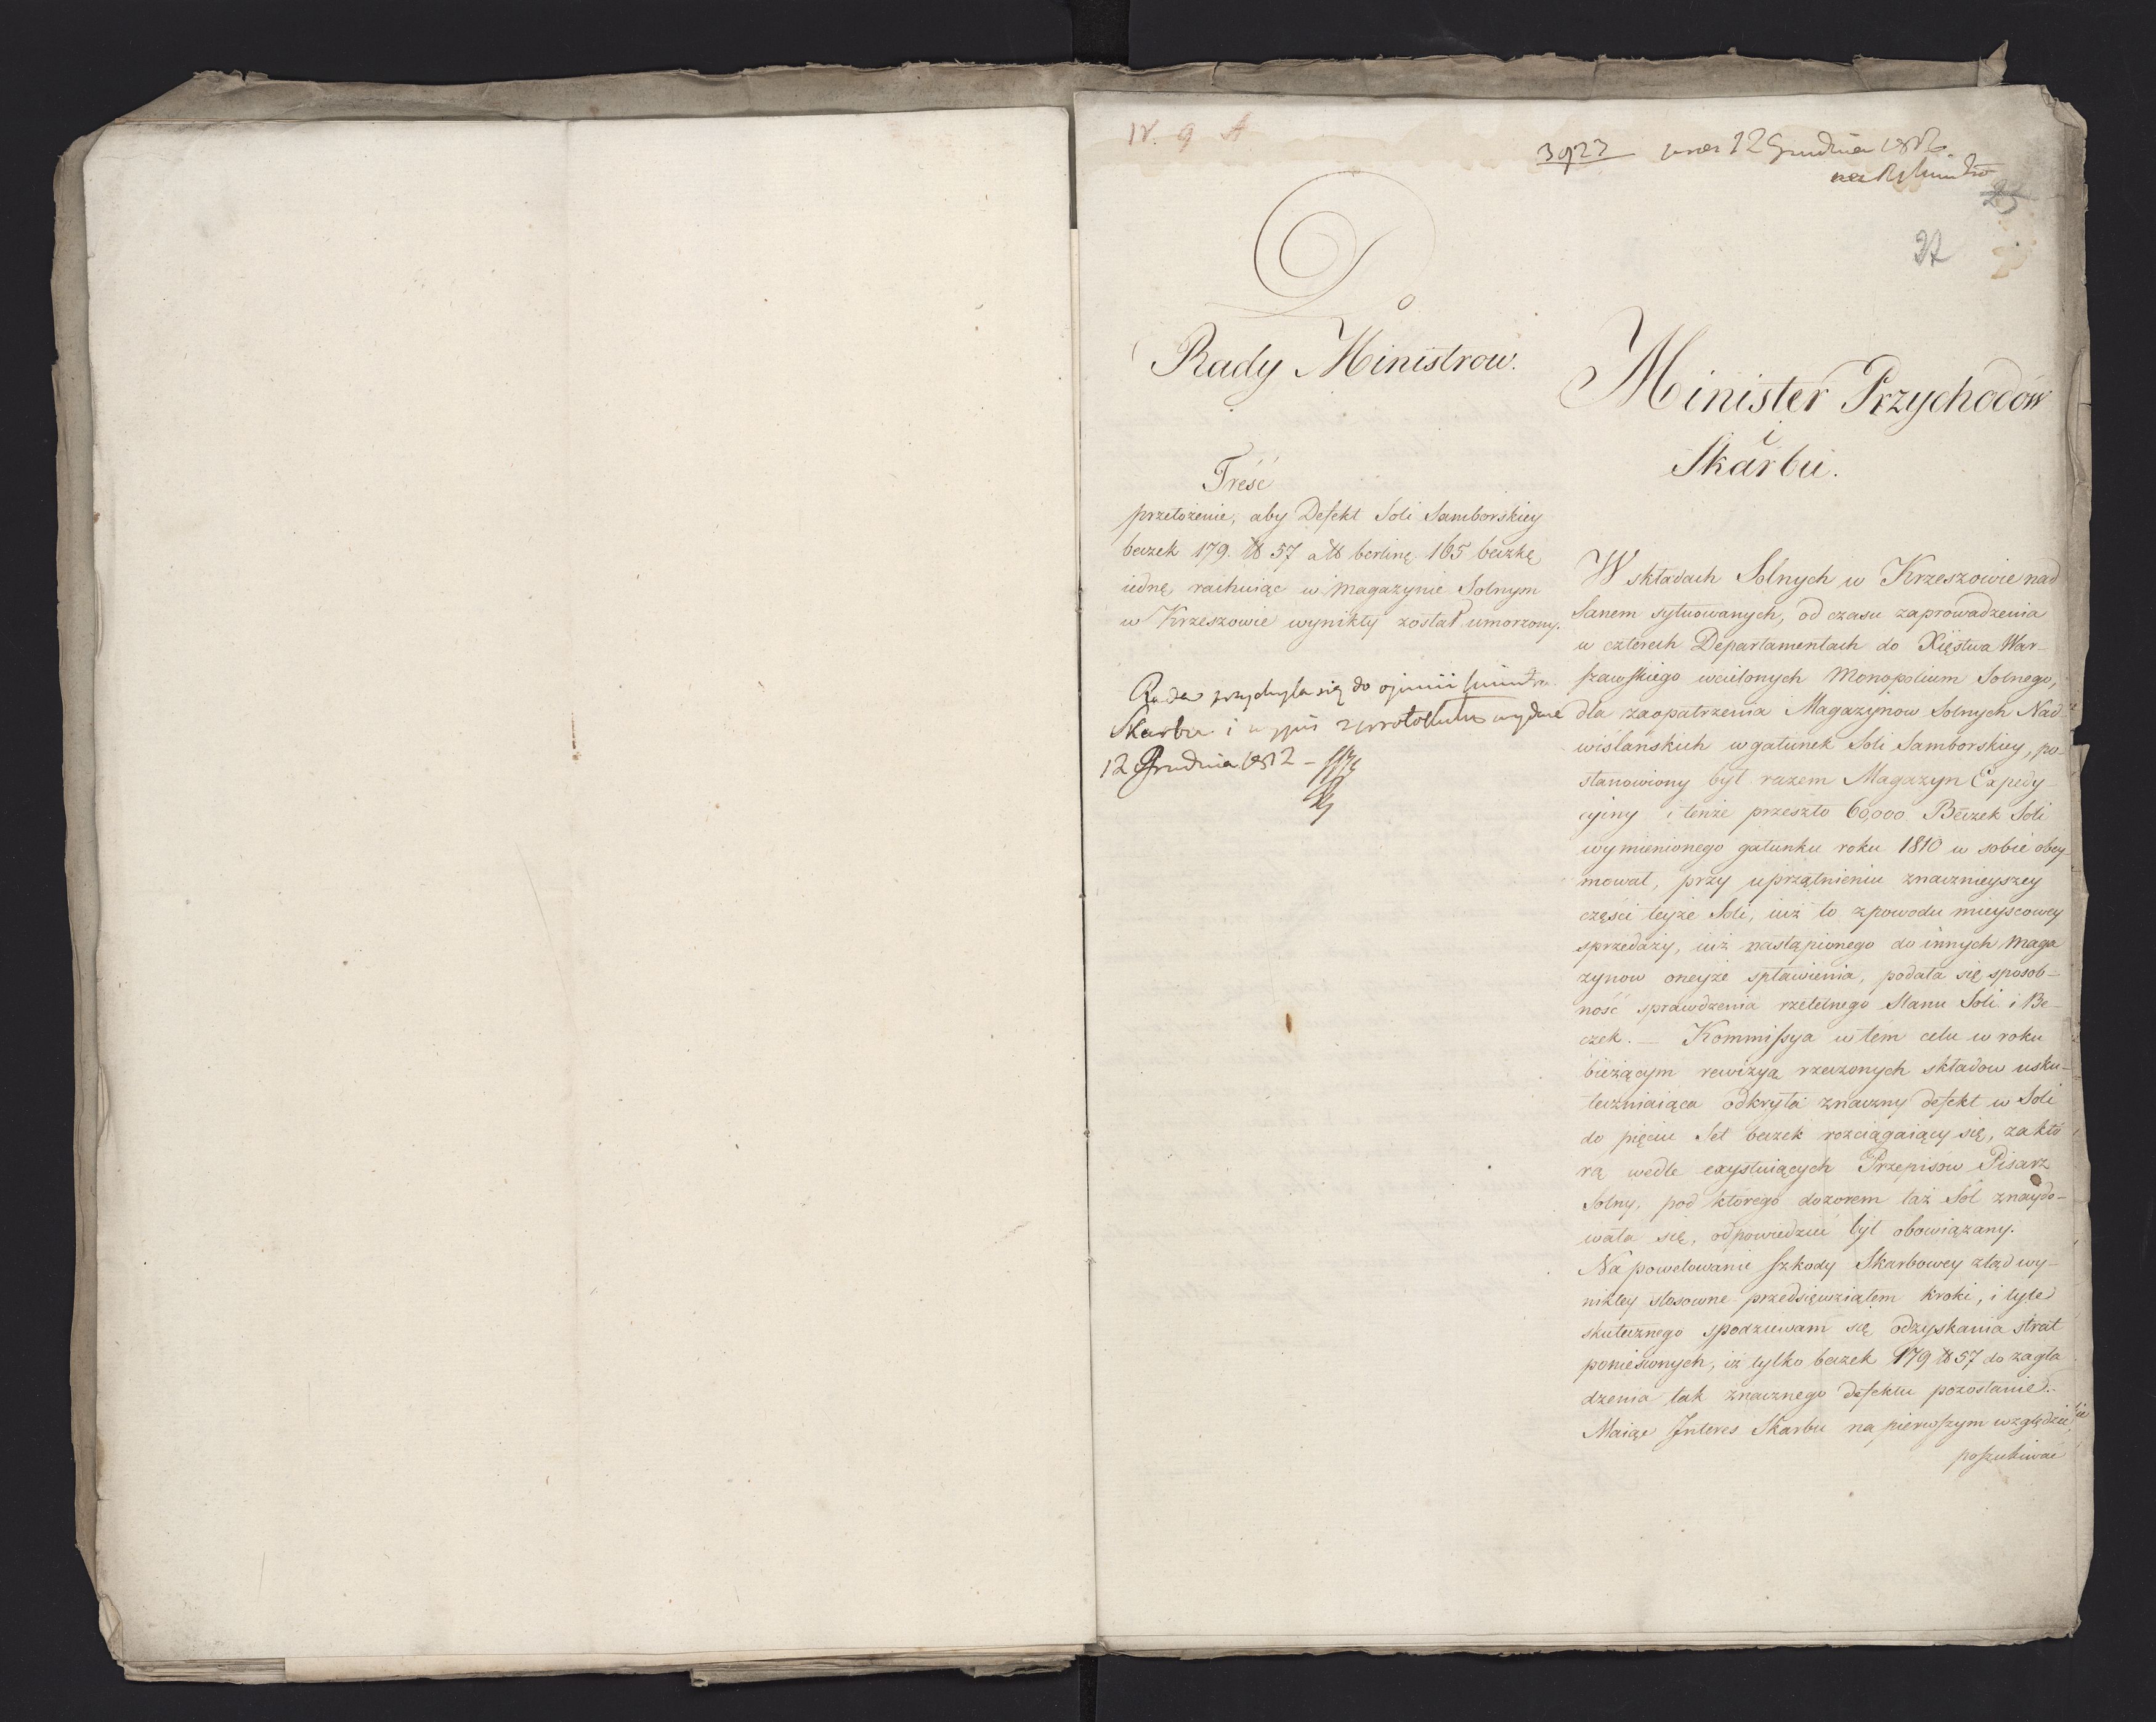 IV. 9 A
3923 12 Grudnia 1812
25
37
Do
Rady Ministrow.
Treść
przełożenie, aby Defekt Soli Samborskiey
beczek 179. ℔ 57 a ℔ berlinę 165 beczkę
iednę rachuiąc w Magazynie Solnym
w Krzeszowie wynikły został umorzony.
Rada przychyla się do opinii Ministra
Skarbu i z protokułu wydane
12 Grudnia 1812 –
Minister Przychodów
i
Skarbu.
W składach Solnych w Krzeszowie nad
Sanem sytuowanych, od czasu zaprowadzenia
w czterech Departamentach do Xięstwa War-
szawskiego wcielonych Monopolium Solnego,
dla zaopatrzenia Magazynow Solnych Nad-
wiślańskich w gatunek Soli Samborskiey, po-
stanowiony był razem Magazyn Expedy-
cyiny i tenże przeszło 60,000 Beczek Soli
wymienionego gatunku roku 1810 w sobie obey-
mował, przy uprzątnieniu znacznieyszey
części teyże Soli, iuż to z powodu mieyscowey
sprzedaży, iuż nastąpionego do innych Maga
zynow oneyże spławienia, podała się sposob-
ność sprawdzenia rzetelnego Stanu Soli i Be-
czek. — Kommissya w tem celu w roku
bieżącym rewizyą rzeczonych składow usku-
teczniaiąca odkryła znaczny defekt w Soli
do pięciu Set beczek rozciągaiący się, za któ
rą wedle exystuiących Przepisów Pisarz
Solny, pod którego dozorem taż Sól znaydo-
wała się, odpowiedzieć był obowiązany.
Na powetowanie szkody Skarbowey ztąd wy-
nikłey stosowne przedsięwziąłem kroki, i tyle
skutecznego spodziewam się odzyskania strat
poniesionych, iż tylko beczek 179 ℔ 57 do zagła
dzenia tak znacznego defektu pozostanie.
Maiąc Interes Skarbu na pierwszym względzie,
poszukiwać